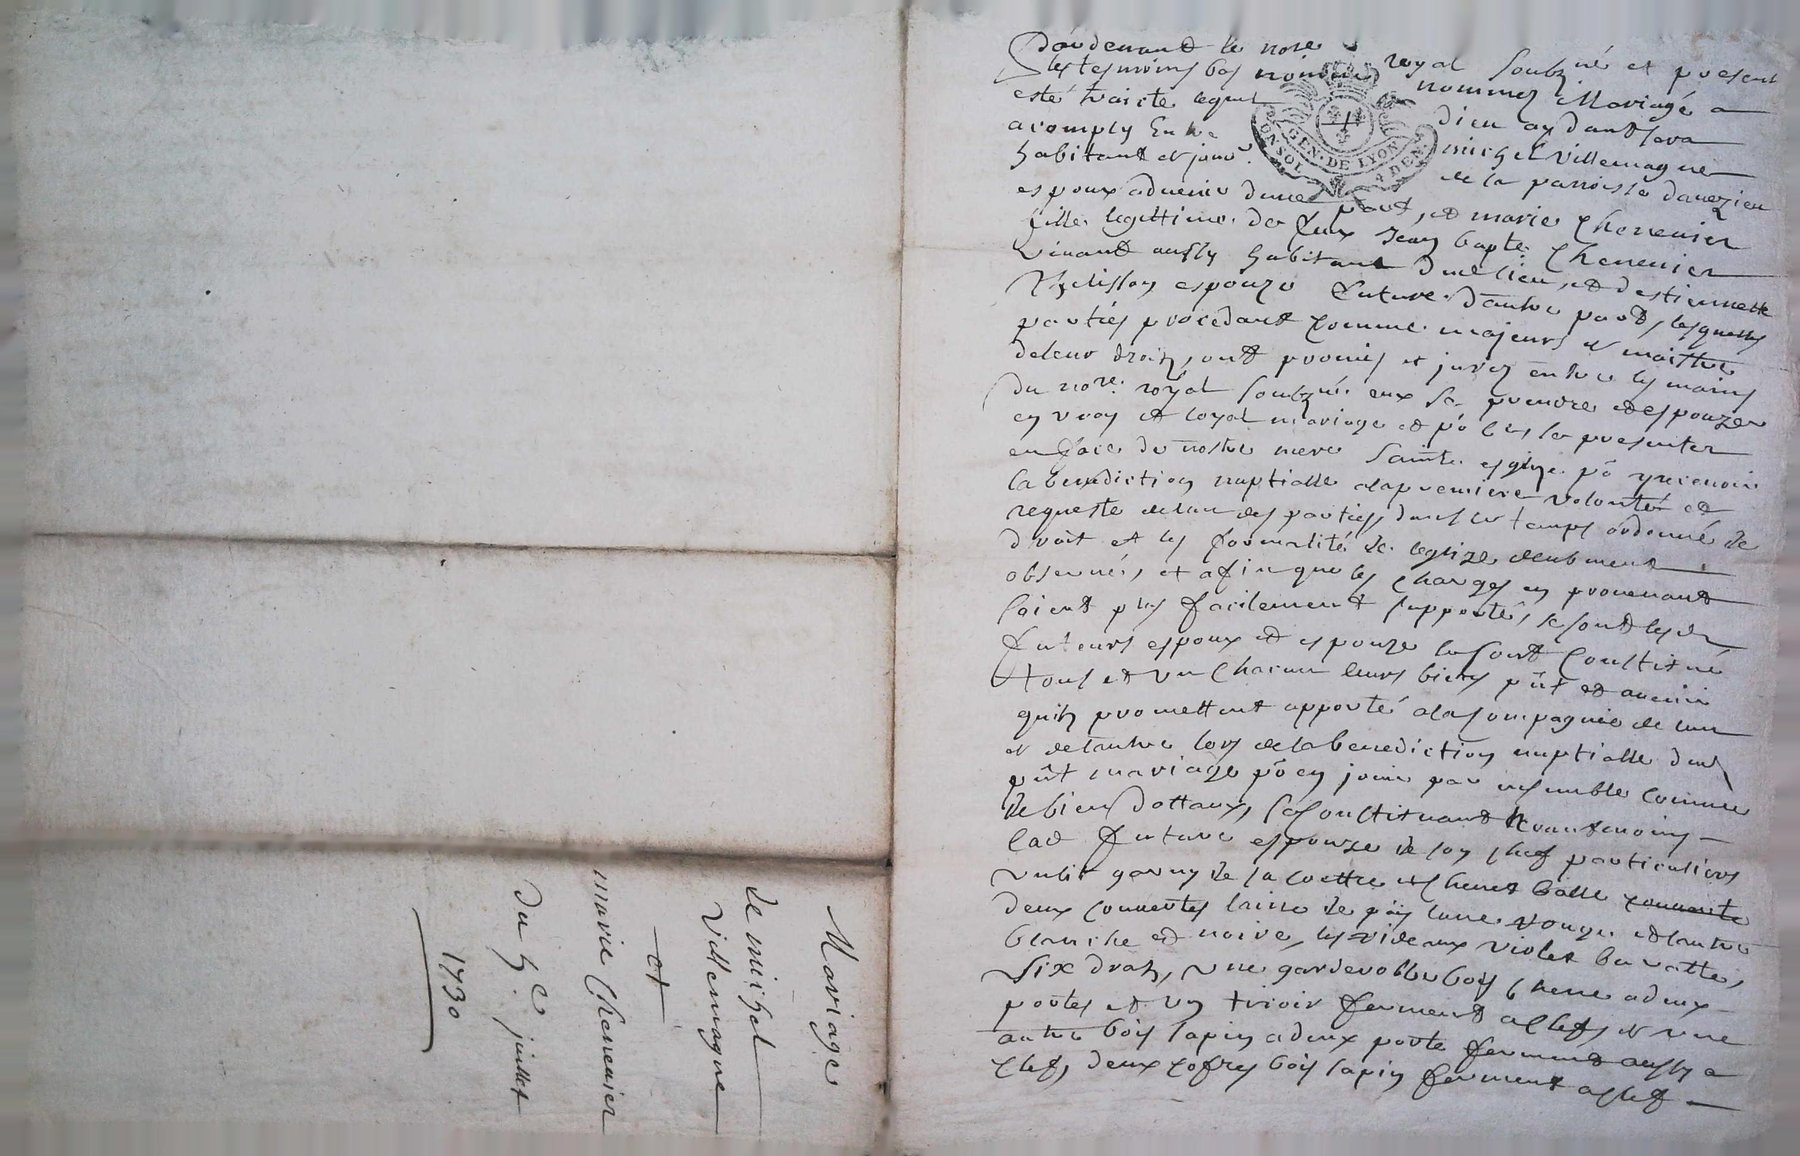 Mariage
de michel
Villemagne
et
marie Cheneuier
du 5e juillet
1730
Pardeuant le nore royal soubzné et presents
les tesmoins bas nommez Mariage a
esté traicte lequel dieu aydant sera
acomply Entre michel Villemagne
habitant et jour. de la parroisse dauezieu
espoux aduenir dune part, et marie Cheneuier
fille legittime de feux Jean bapte Cheneuier
viuant aussy habitant dud lieu, et destiennette
espouze future dautre part, lesquelles
parties procedant comme majeurs et maistres
de leur droitz, ont promis et jurez entre les mains
du nore royal soubzné eux se prendre et espouzer
en vray et loyal mariage et po les se presenter
en face de nostre mere sainte esglize po y receuoir
la benediction nuptialle a la premiere volonté et
requeste de lun des parties, dans les temps ordonné de
droit et les formalité de leglize deubment
obserués, et afin que les charges en prouenant
soient plus facilement supportés, se sont lesd
futeurs espoux et espouze se sont constitué
tous et un chacun leurs biens pñt et aueniir
quils promettent apporté a la compagnie de lun
et de lautre lors de la benediction nuptialle dud
pñt mariage po en jouir par ensemble comme
de bien dottaux, se constituant neantmoins
lad future espouze de son chef particuliers
un lit garny de sa coettre et cheuet balle couuerte
deux couuertes laine de païs lune rouge et lautre
blanche et noire, les rideaux violet
six draps, une garderobbe bois chene a deux
portes et un tirioir fermant a clefs et une
autre bois sapin a deux porte fermant aussy a
clef, deux cofres bois sapin fermant a clef
GEN. DE LYON